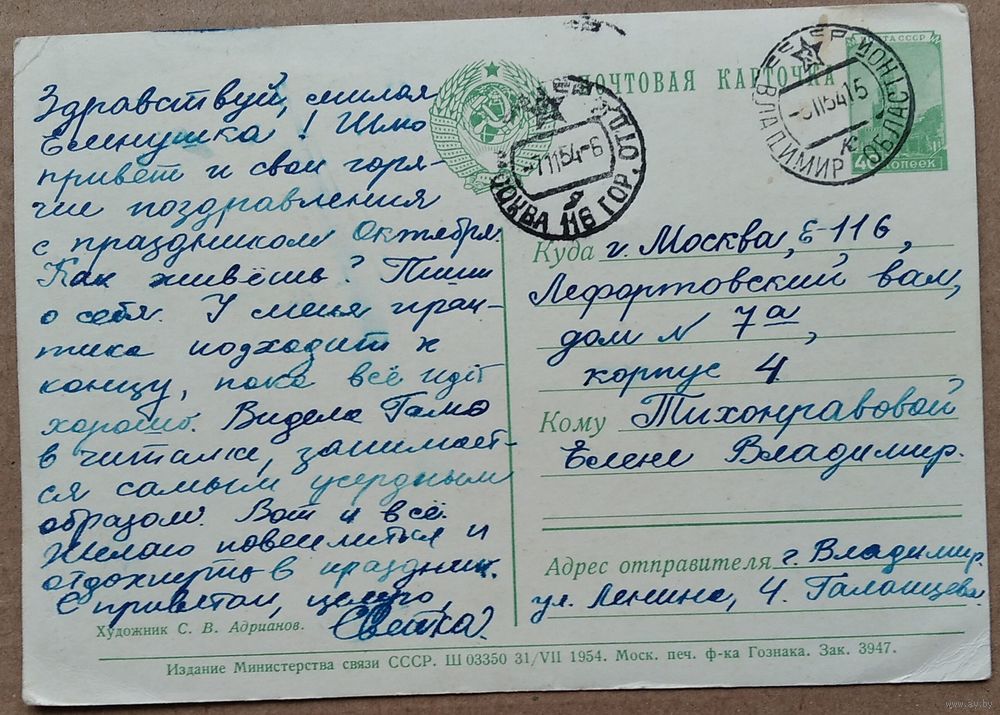 Здравствуй, милая
Еленушка! Шлю
привет и свои горя-
чие поздравления
с праздником Октября.
Как живёшь? Пиши
о себя. У меня прак-
тика подходит к
концу, пока всё идёт
хорошо. Видела Галю
в читалке, занимает-
ся самым усердным
образом. Вот и всё.
Желаю повеселиться и
отдохнуть в праздник.
С приветом, целую,
Светка.
Художник С. В. Адрианов.
ПОЧТОВАЯ КАРТОЧКА
ПОЧТА СССР
40 КОПЕЕК
МОСКВА 116 ГОР.
-7 11 54-6
ВЛАДИМИР ОБЛАСТНОЙ
-5 11 54 15
Куда г. Москва, Е-116,
Лефортовский вал,
дом № 7а,
корпус 4
Кому Тихонравовой
Елене Владимир.
Адрес отправителя г. Владимир.
ул. Ленина, 4.
Издание Министерства связи СССР. Ш 03350 31/VII 1954. Моск. печ. ф-ка Гознака. Зак. 3947.
www.ay.by